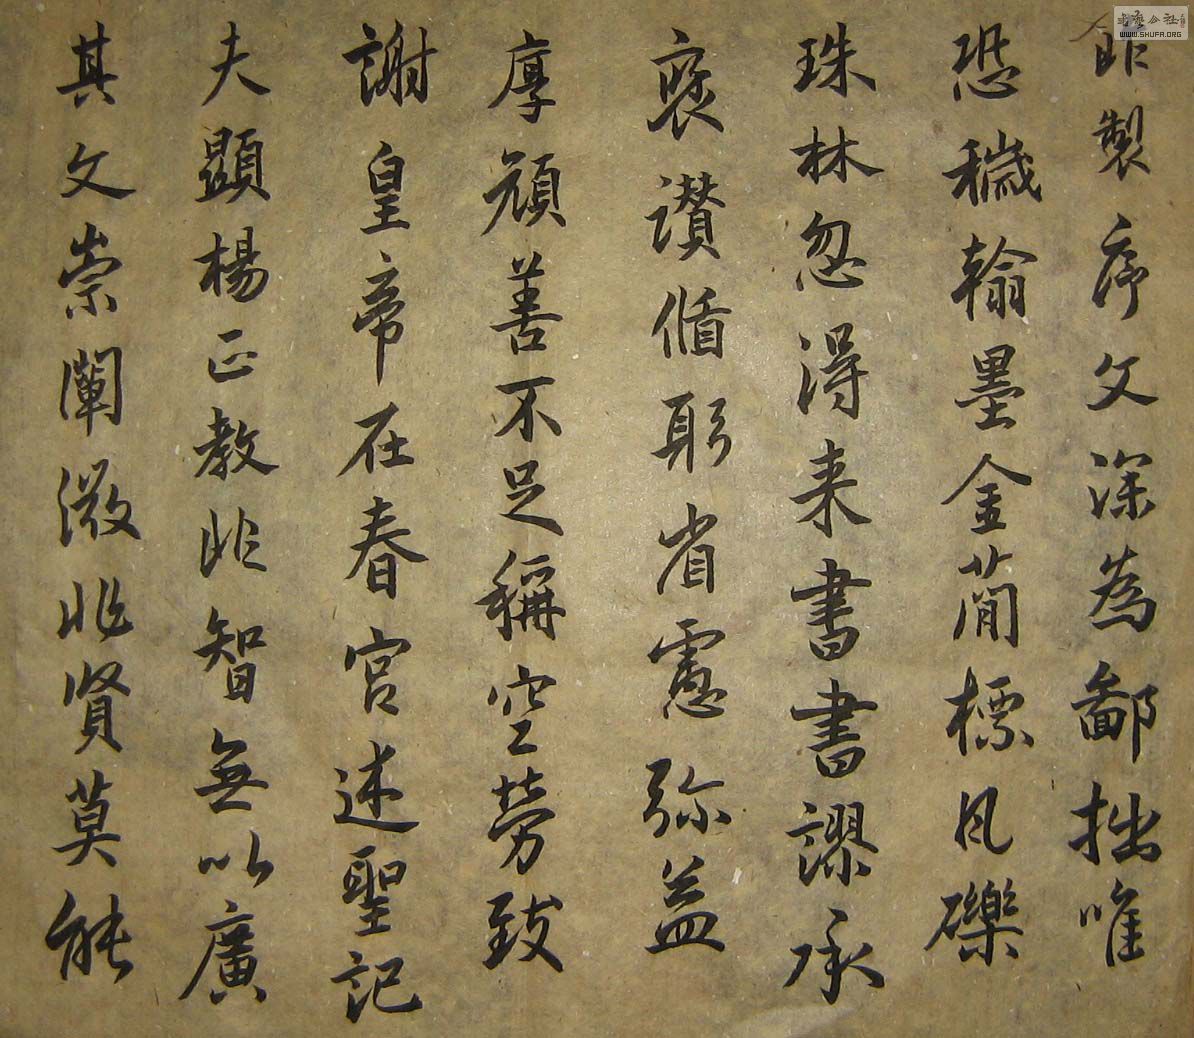 昨製序文深為鄙拙唯
恐穢翰墨金蕳標风礫
珠林忽得来書書謬承
褒讃循躬省慮弥益
厚顔善不足稱空勞致
謝皇帝在春宫述聖記
夫顯楊正教非智無以廣
其文崇闡微非賢莫能
WWW.SHUFA.ORG